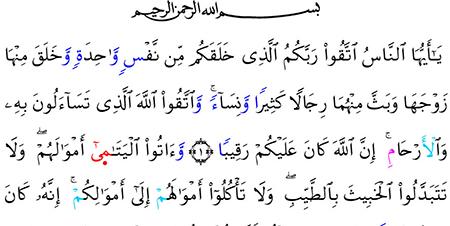 بِسْمِ اللَّهِ الرَّحْمَٰنِ الرَّحِيمِ
يَٰٓأَيُّهَا ٱلنَّاسُ ٱتَّقُوا۟ رَبَّكُمُ ٱلَّذِى خَلَقَكُم مِّن نَّفْسٍ وَٰحِدَةٍ وَّخَلَقَ مِنْهَا
زَوْجَهَا وَبَثَّ مِنْهُمَا رِجَالًا كَثِيرًا وَّنِسَآءً ۚ وَّٱتَّقُوا۟ ٱللَّهَ ٱلَّذِى تَسَآءَلُونَ بِهِۦ
وَٱلْأَرْحَامَ ۚ إِنَّ ٱللَّهَ كَانَ عَلَيْكُمْ رَقِيبًا ﴿١﴾ وَّءَاتُوا۟ ٱلْيَتَٰمَىٰٓ أَمْوَٰلَهُمْ ۖ وَلَا
تَتَبَدَّلُوا۟ ٱلْخَبِيثَ بِٱلطَّيِّبِ ۖ وَلَا تَأْكُلُوٓا۟ أَمْوَٰلَهُمْ إِلَىٰٓ أَمْوَٰلِكُمْ ۚ إِنَّهُۥ كَانَ